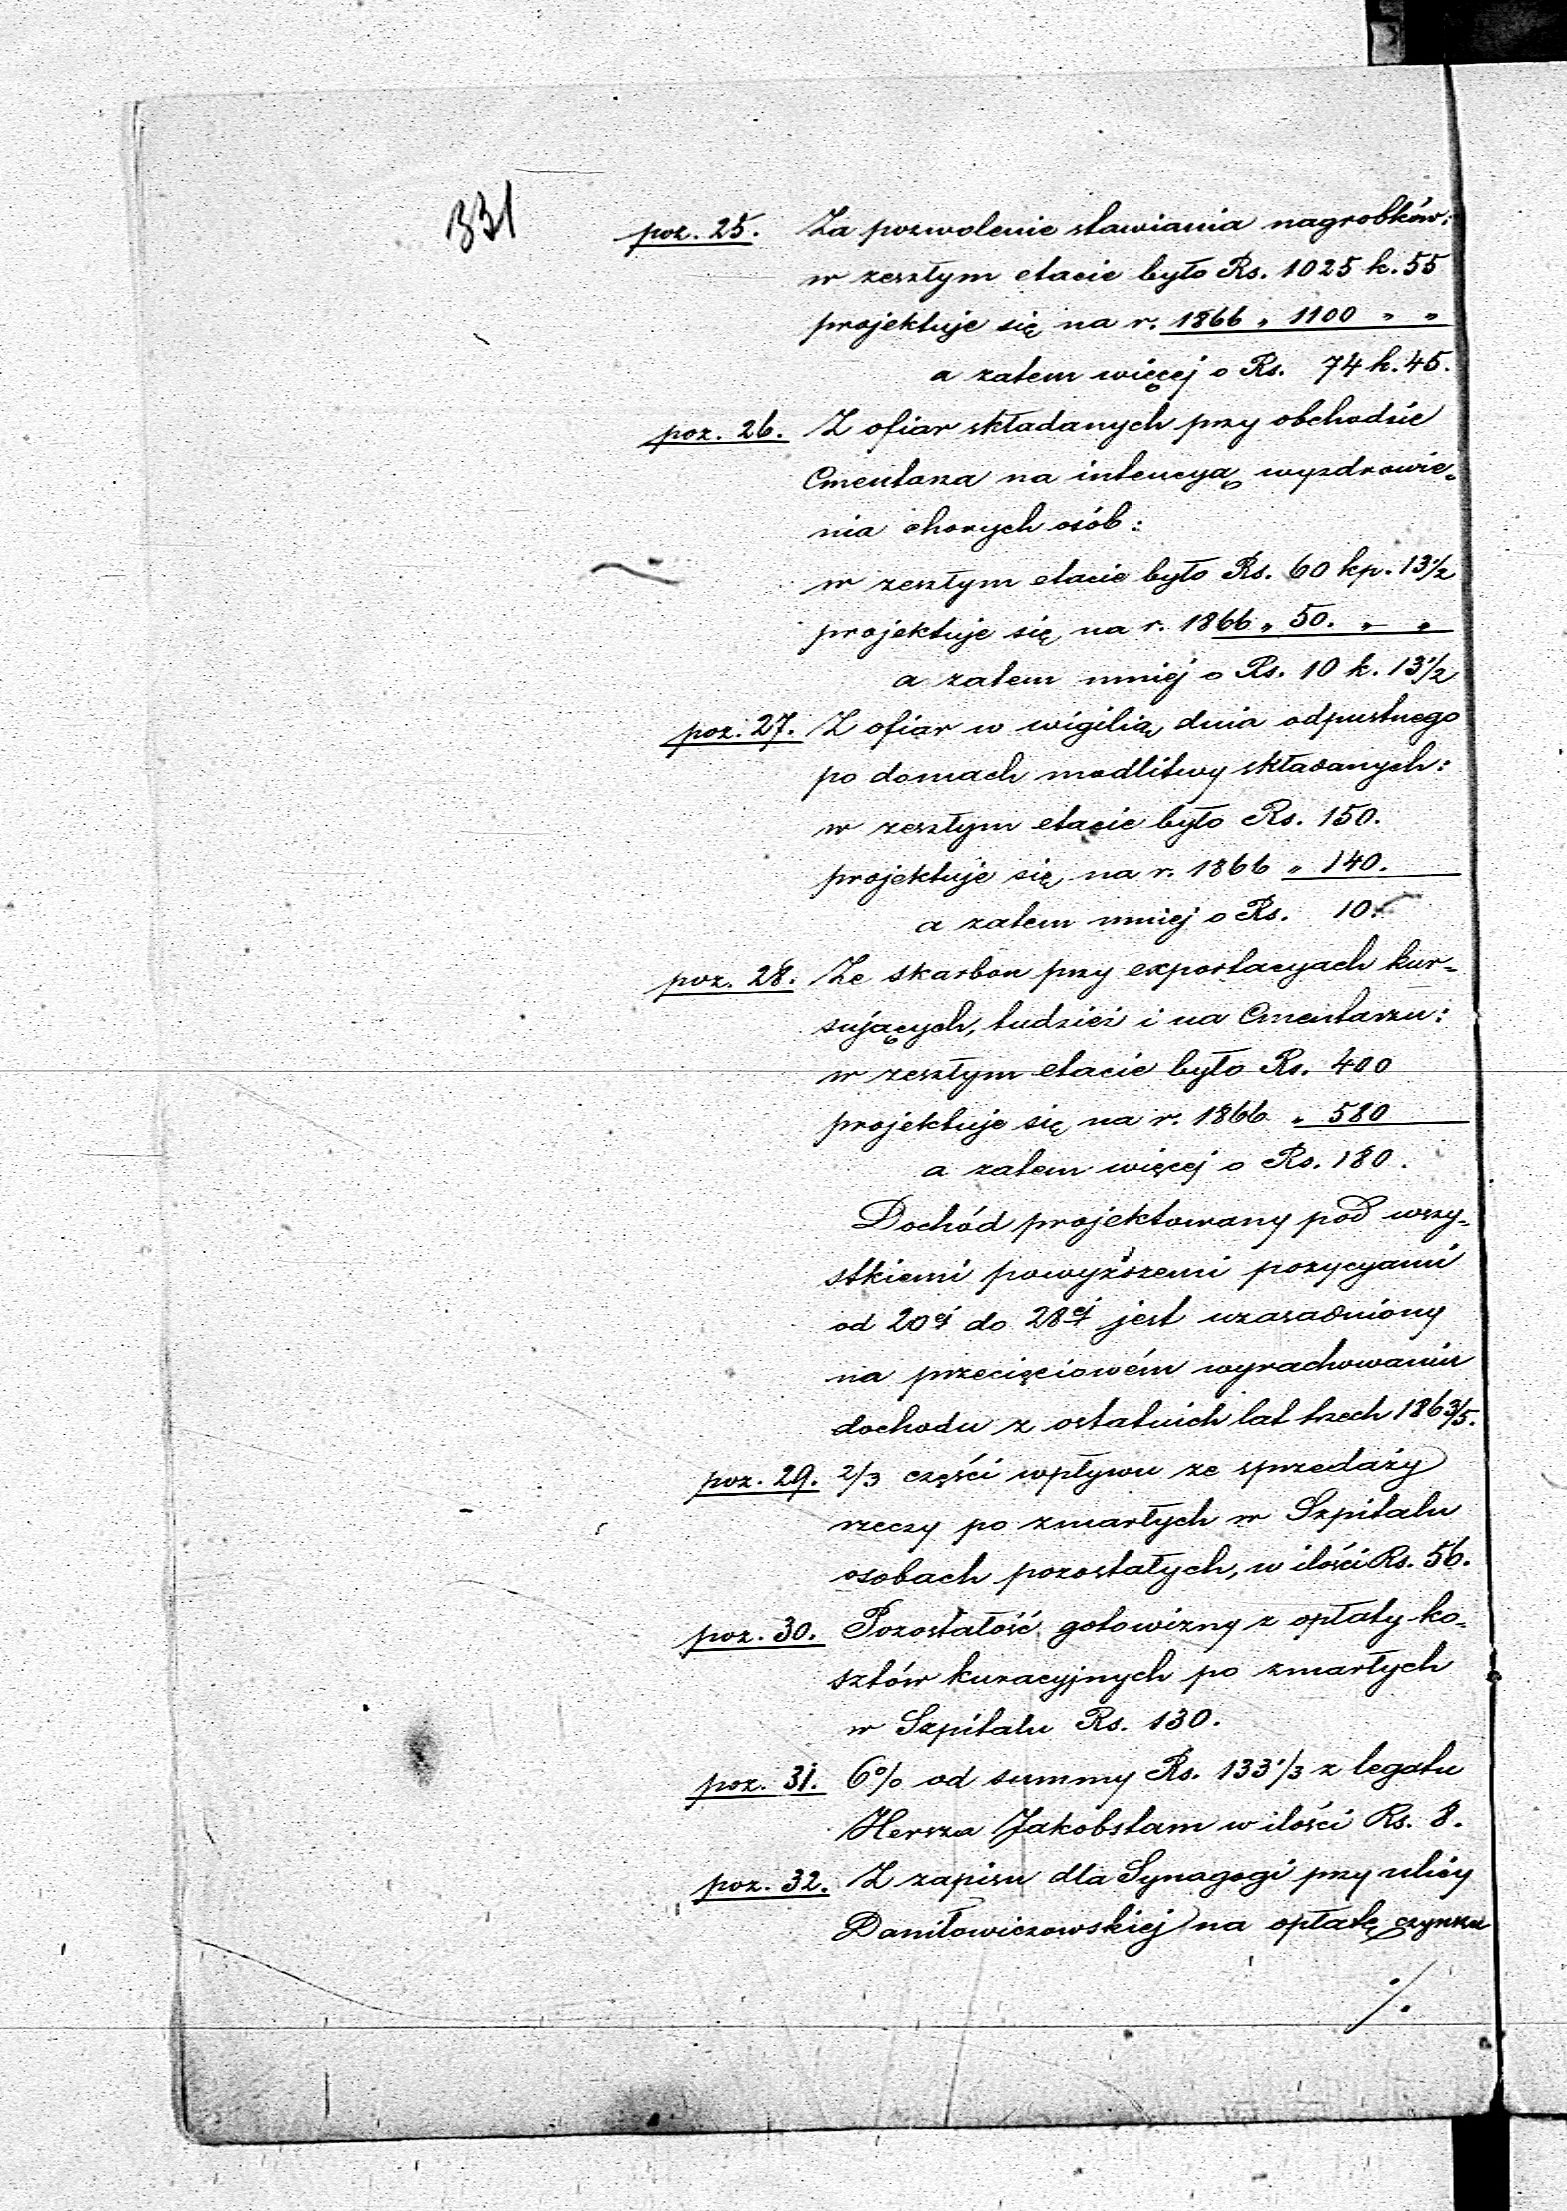 331
poz. 25. Za pozwolenie stawiania nagrobków:
w zeszłym etacie było Rs. 1025 k. 55
projektuje się na r. 1866 „ 1100 „ „
a zatem więcej o Rs. 74 k. 45.
poz. 26. Z ofiar składanych przy obchodzie
Cmentarza na intencyą wyzdrowie„
nia chorych osób:
w zeszłym etacie było Rs. 60 kp. 13 1/2
projektuje się na r. 1866 „ 50. „ „
a zatem mniej o Rs. 10 k. 13 1/2
poz. 27. Z ofiar w wigilią dnia odpustnego
po domach modlitwy składanych:
w zeszłym etacie było Rs. 150.
projektuje się na r. 1866 „ 140.
a zatem mniej o Rs. 10.
poz. 28. Ze skarbon przy exportacyach kur„
sujących, tudzież i na Cmentarzu:
w zeszłym etacie było Rs. 400
projektuje się na r. 1866 „ 580
a zatem więcej o Rs. 180.
Dochód projektowany pod wszy„
stkiemi powyższemi pozycyami
od 20ej do 28ej jest uzasadniony
na przecięciowém wyrachowaniu
dochodu z ostatnich lat trzech 1863/5.
poz. 29. 2/3 części wpływu ze sprzedaży
rzeczy po zmarłych w Szpitalu
osobach pozostałych, w ilości Rs. 56.
poz. 30. Pozostałość gotowizny z opłaty ko„
sztów kuracyjnych po zmarłych
w Szpitalu Rs. 130.
poz. 31. 6% od summy Rs. 133 1/3 z legatu
Hersza Jakobstam w ilości Rs. 8.
poz. 32. Z zapisu dla Synagogi przy ulicy
Daniłowiczowskiej na opłatę czynszu
./.